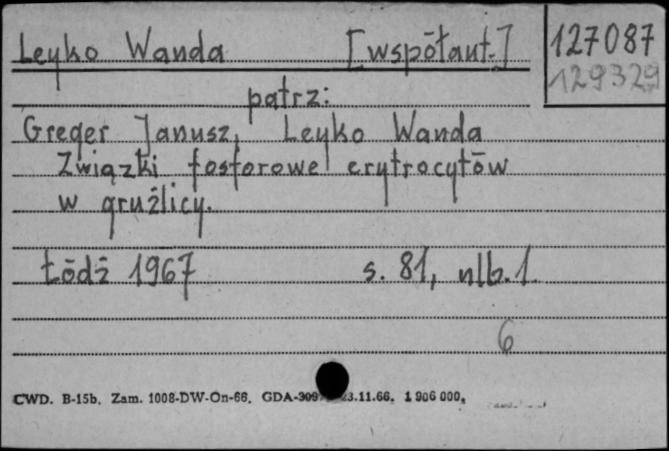 Leyko Wanda [współaut.] 127087
129329
patrz:
Greger Janusz, Leyko Wanda
Związki fosforowe erytrocytów
w gruźlicy.
Łódź 1967 s. 81, nlb. 1
6
CWD. B-15b. Zam. 1008-DW-On-66. 23.11.66. 1 906 000.